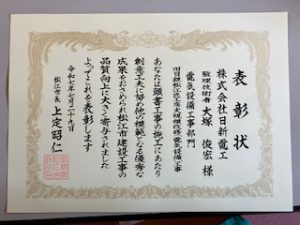 表彰状
株式会社日新電工
監理技術者 大塚 俊宏 様
電気設備工事部門
旧日銀松江支店大規模改修電気設備工事
あなたは頭書工事の施工にあたり
創意工夫に努め他の模範となる優秀な
成果をおさめられ松江市建設工事の
品質向上に大きく寄与されました
よってこれを表彰します
令和七年七月二十九日
松江市長 上定昭仁